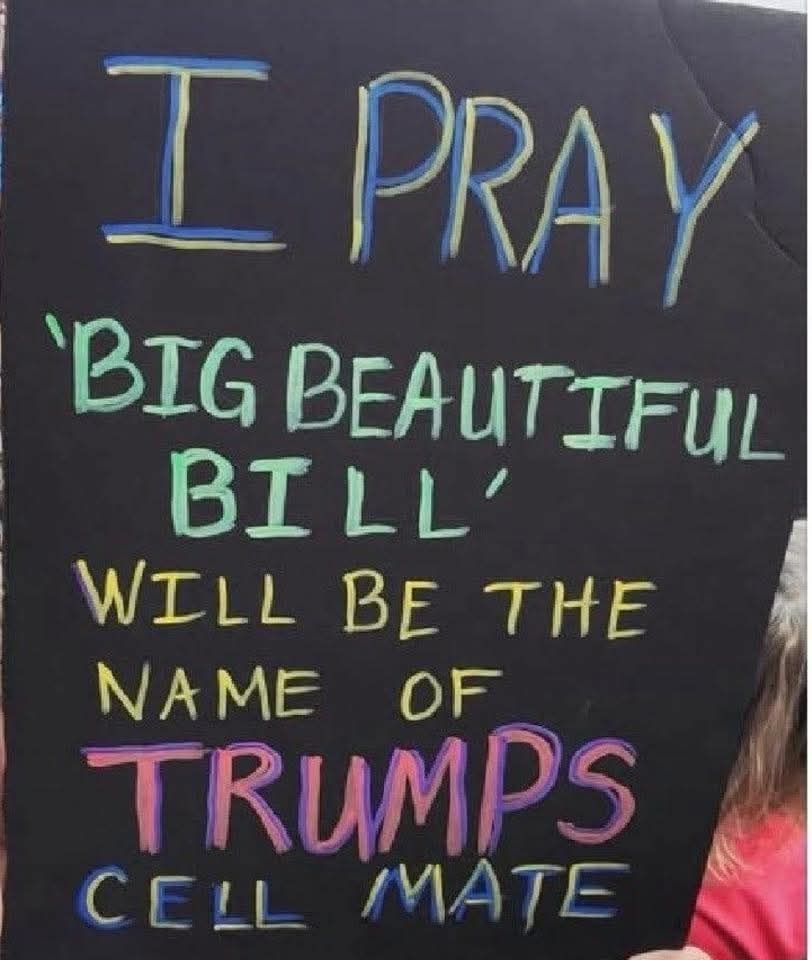 I PRAY
'BIG BEAUTIFUL
BILL'
WILL BE THE
NAME OF
TRUMPS
CELL MATE